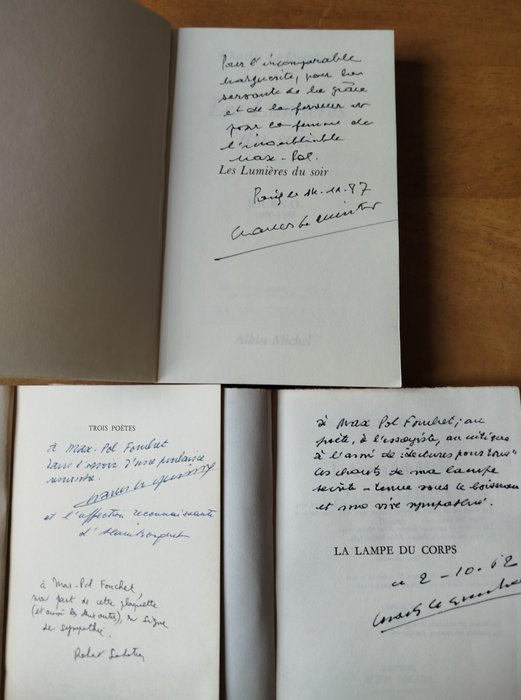 Pour l'incomparable
Marguerite, pour la
servante de la grâce
et de la ferveur et
pour la femme de
l'inoubliable
Max-Pol.
Les Lumières du soir
Paris, le 14.11.87
Charles Le Quintrec
Albin Michel
TROIS POÈTES
à Max-Pol Fouchet
dans l'espoir d'une prochaine
rencontre.
Charles Le Quintrec
et l'affection reconnaissante
d'Alain Bosquet
à Max-Pol Fouchet,
ma part de cette plaquette
(et aussi les deux autres), en signe
de sympathie.
Robert Sabatier
à Max Pol Fouchet, au
poète, à l'essayiste, au critique
à l'ami de "lectures pour tous"
ces chants de ma lampe
secrète - tenue sous le boisseau
et ma vive sympathie.
LA LAMPE DU CORPS
2-10-62
Charles Le Quintrec